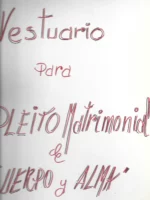 Vestuario
para
PLEITO Matrimonial
de
CUERPO y ALMA